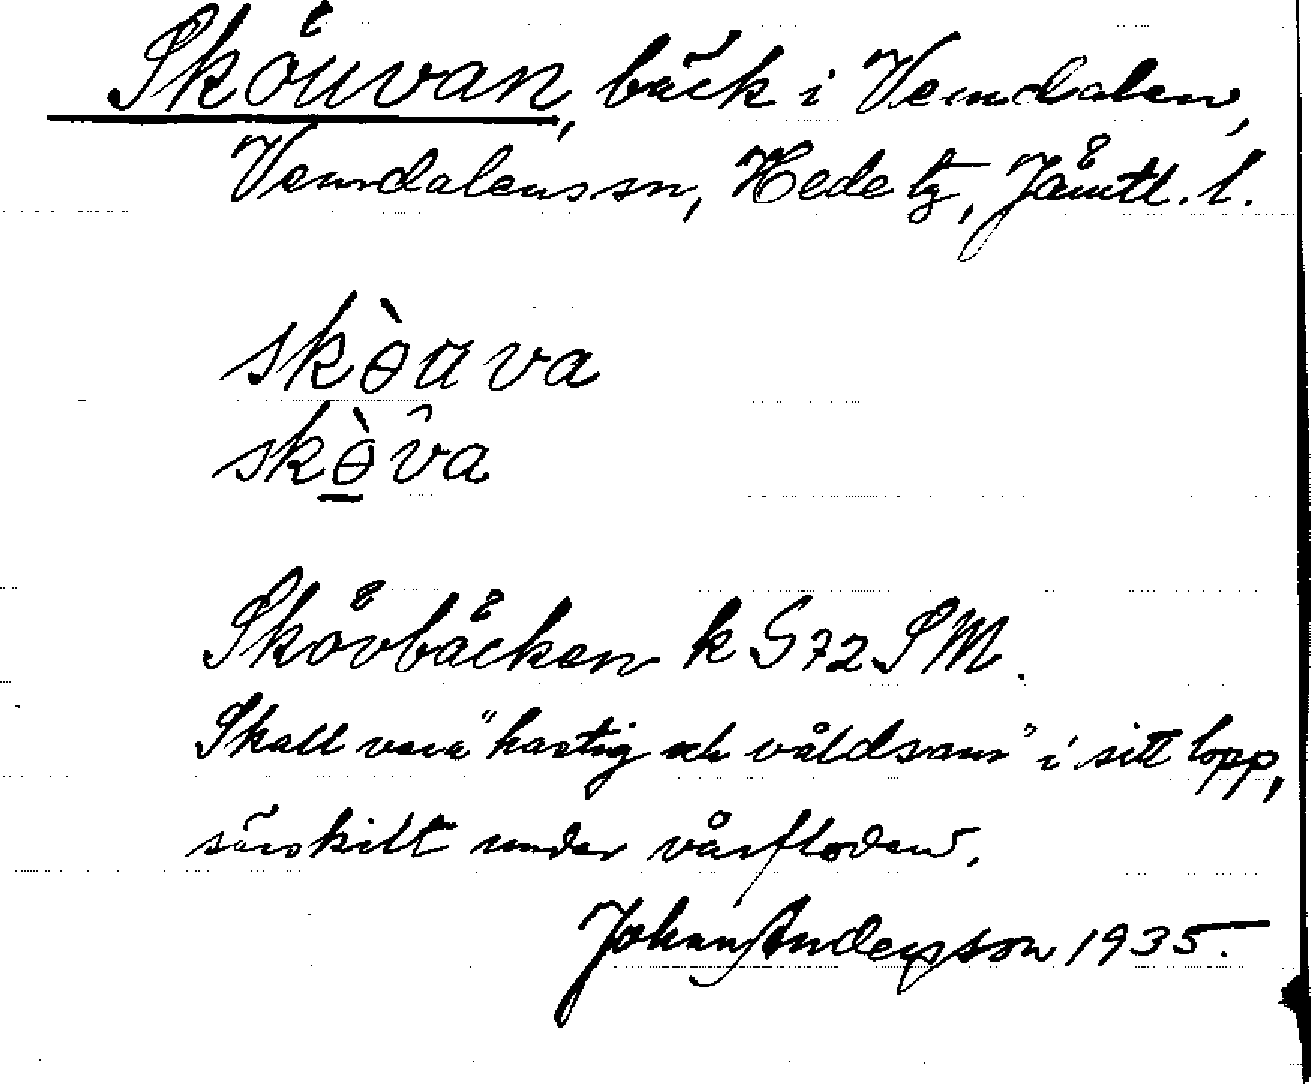 Sköuvan, bäck i Vemdalen,
Vemdalens sn, Hede tg, Jämtl. l.
skɵ̀ava
skɵ̱̀v̂a
Skövbäcken k S72SM.
Skall vara "hastig och våldsam" i sitt lopp,
särskilt under vårfloden.
Johan Anderson 1935.